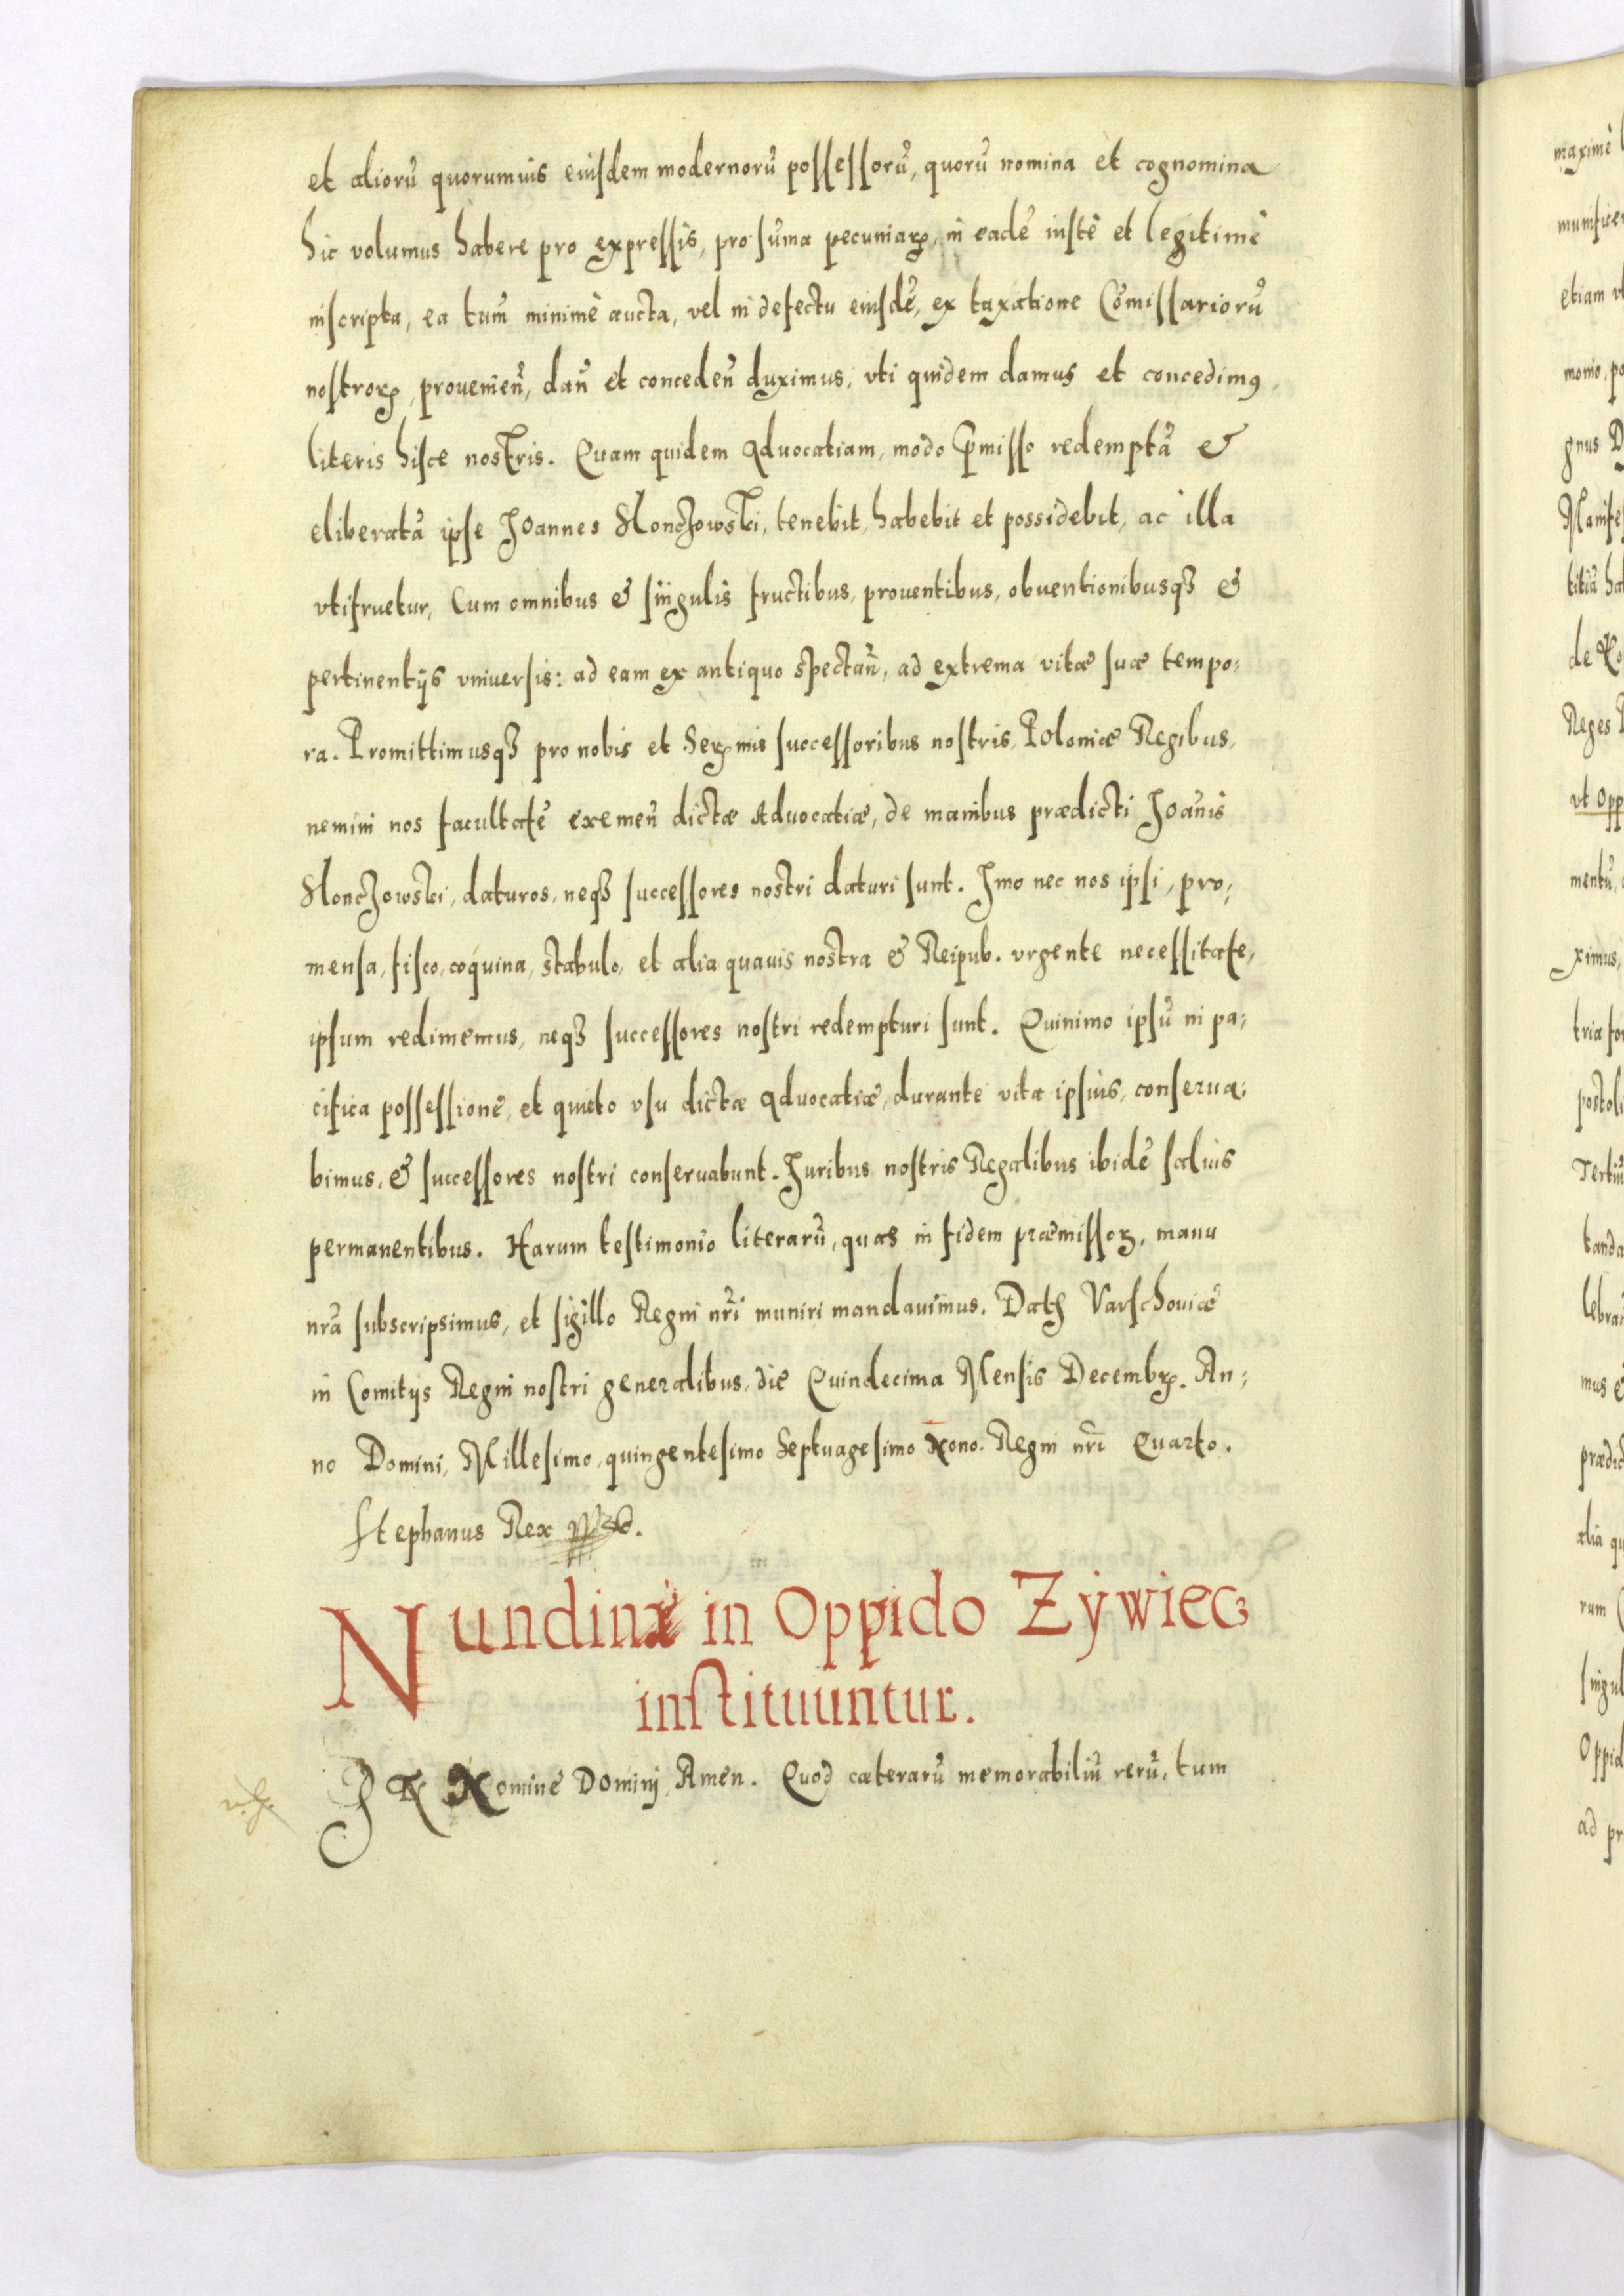 et aliorũ quorumuis eiusdem modernorũ possessorũ, quorũ nomina et cognomina
hic volumus habere pro expressis, pro sum̃a pecuniarꝝ, in eadẽ iustè et legitimè
inscripta, ea tum̃ minimè aucta, vel in defectu eiusdẽ, ex taxatione Com̃issariorũ
nostrorꝝ, prouenien̄, dan̄ et conceden̄ duximus, vti quidem damus et concedimꝯ,
literis hisce nostris. Quam quidem Aduocatiam, modo p̃misso redemptã &
eliberatã ipse Joannes Slonczowski, tenebit, habebit et possidebit, ac illa
vtifruetur, Cum omnibus & singulis fructibus, prouentibus, obuentionibusqȝ &
pertinentijs vniuersis: ad eam ex antiquo spectan̄, ad extrema vitæ suæ tempo:
ra. Promittimusqȝ pro nobis et Serꝝmis successoribus nostris, Poloniæ Regibus,
nemini nos facultatẽ eximen̄ dictæ Aduocatiæ, de manibus prædicti Joan̄is
Slonczowski, daturos, neqȝ successores nostri daturi sunt. Imo nec nos ipsi, pro:
mensa, fisco, coquina, stabulo, et alia quauis nostra & Reipub. vrgente necessitate,
ipsum redimemus, neqȝ successores nostri redempturi sunt. Quinimo ipsũ in pa:
cifica possessionẽ, et quieto vsu dictæ Aduocatiæ, durante vita ipsius, conserua:
bimus, & successores nostri conseruabunt. Juribus nostris Regalibus ibidẽ saluis
permanentibus. Harum testimonio literarũ, quas in fidem præmissoꝝ, manu
nr̃a subscripsimus, et sigillo Regni nr̃i muniri mandauimus. Datꝭ Varschouiæ
in Comitijs Regni nostri generalibus, die Quindecima Mensis Decembꝝ. An:
no Domini, Millesimo, quingentesimo Septuagesimo Nono. Regni nr̃i Quarto.
Stephanus Rex
Nundinæ in Oppido Zÿwiec
instituuntur.
IN Nomine Dominj, Amen. Quod cæterarũ memorabiliũ rerũ, tum
maximè
etiam
gnus D
Reges
ximus,
ad pr